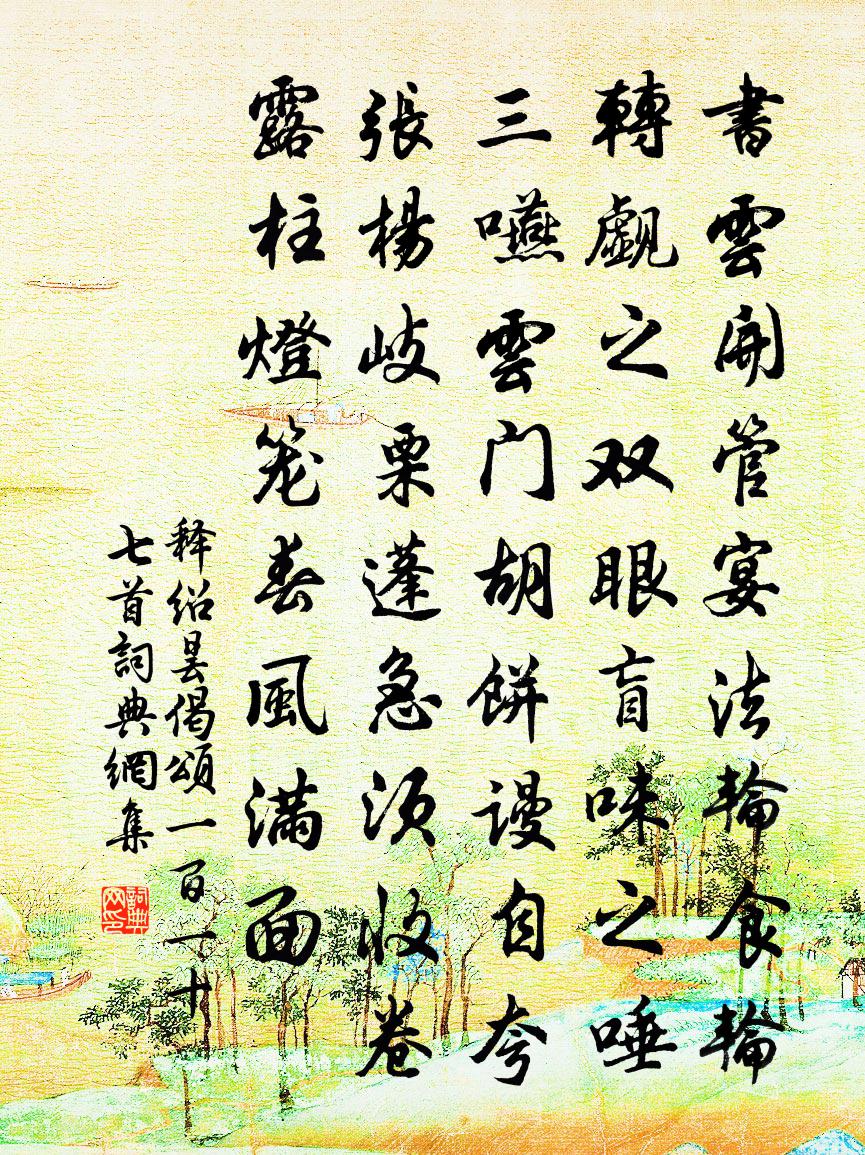 書雲開管宴法輪食輪
轉覷之双眼盲味之唾
三嚥雲门胡餅謾自夸
張楊岐栗蓬急须收卷
露柱燈笼春風满面
释绍昙偈頌一百一十
七首詞典網集
詞典网印